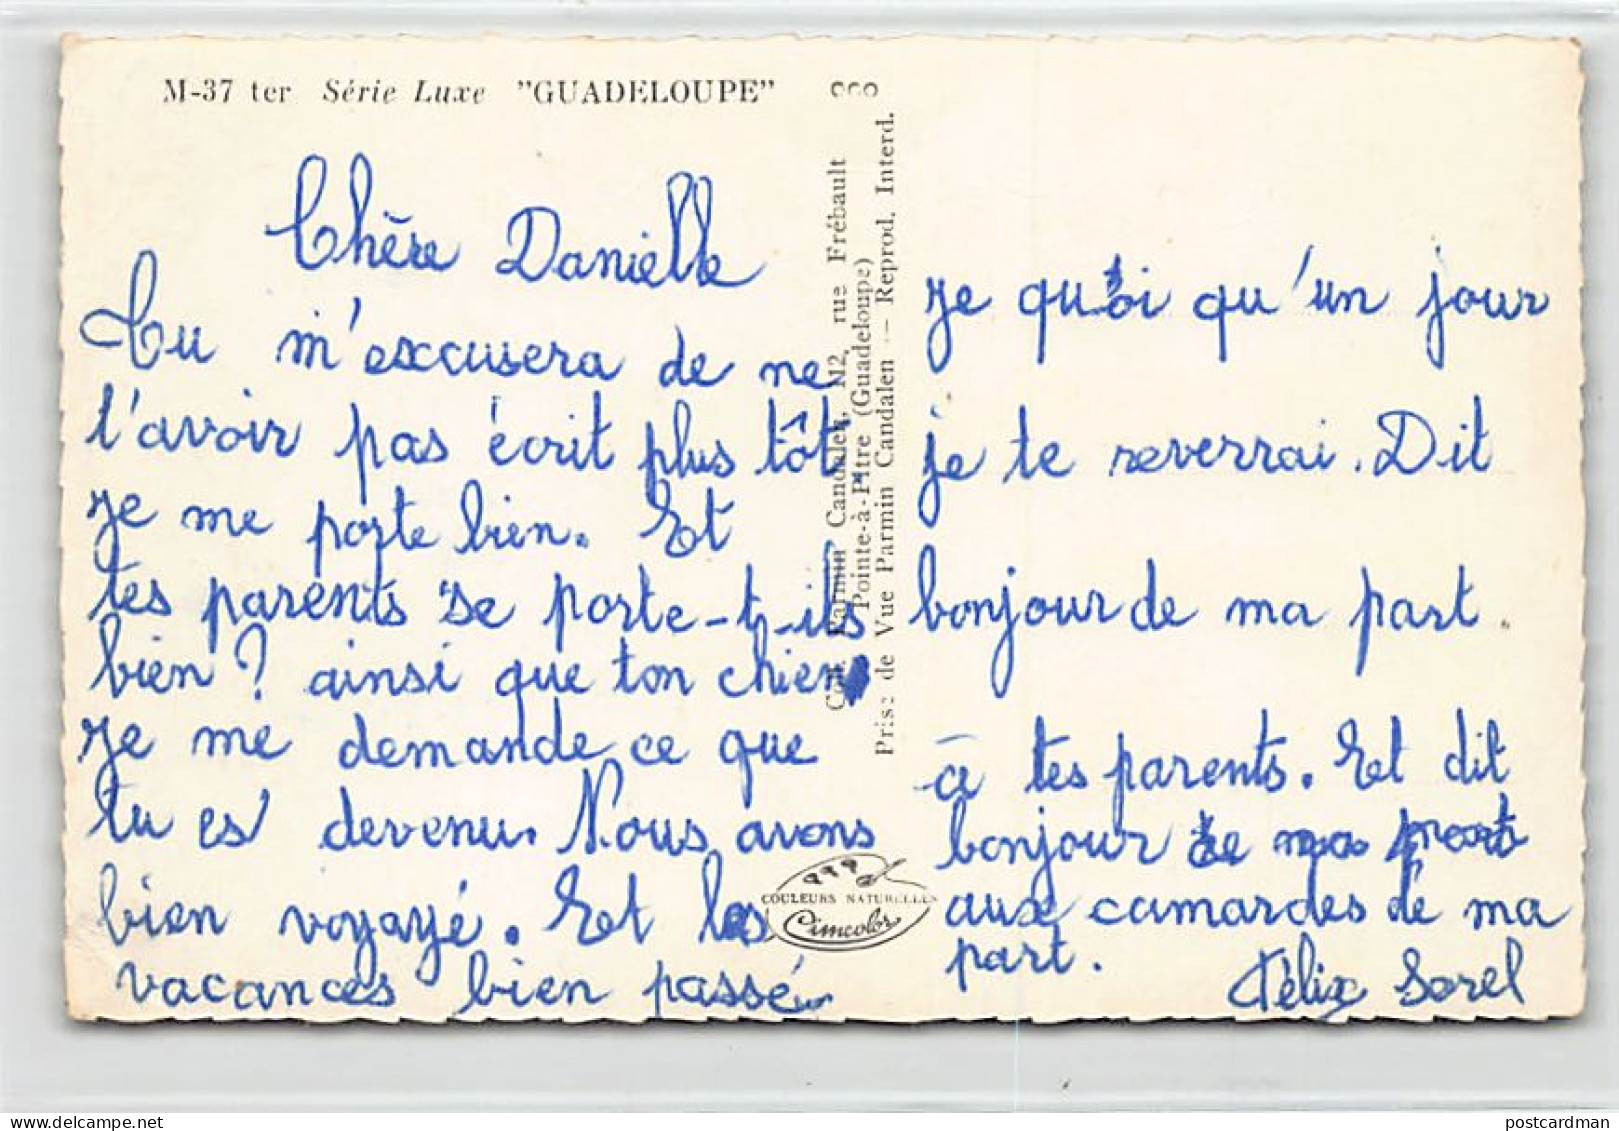 M-37 ter Série Luxe "GUADELOUPE"
Chère Danielle
Tu m'excusera de ne
t'avoir pas écrit plus tôt
Je me porte bien. Et
tes parents se porte-t-ils
bien ? ainsi que ton chien
Je me demande ce que
tu es devenu. Nous avons
bien voyayé. Et les
vacances bien passé
Coll. Parmin Candalen, N2, rue Frébault
Pointe-à-Pitre (Guadeloupe)
Prise de Vue Parmin Candalen — Reprod. Interd.
COULEURS NATURELLES
Cimcolor
Je quoi qu'un jour
je te reverrai. Dit
bonjour de ma part.
à tes parents. Et dit
bonjour de ma part
aux camardes de ma
part.
Félix Sorel
postcardman